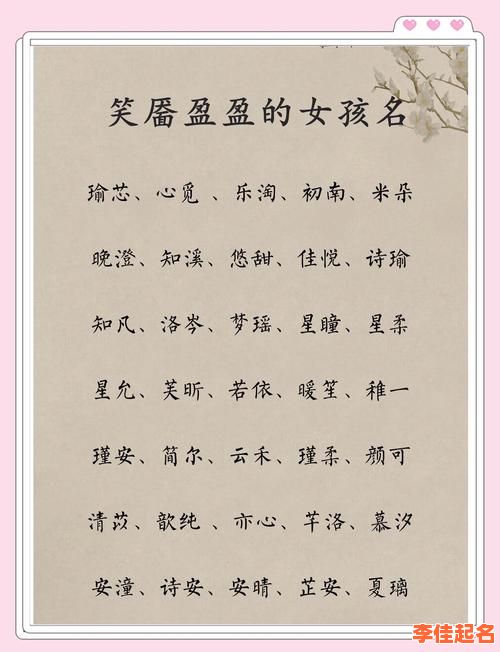 笑靥盈盈的女孩名
瑜芯、心觅、乐淘、初南、米朵
晚澄、知溪、悠甜、佳悦、诗瑜
知凡、洛岑、梦瑶、星瞳、星柔
星允、芙昕、若依、暖笙、稚一
瑾安、简尔、云禾、瑾柔、颜可
清苡、歆纯、亦心、芊洛、慕汐
安潼、诗安、安晴、芷安、夏璃
李佳起名